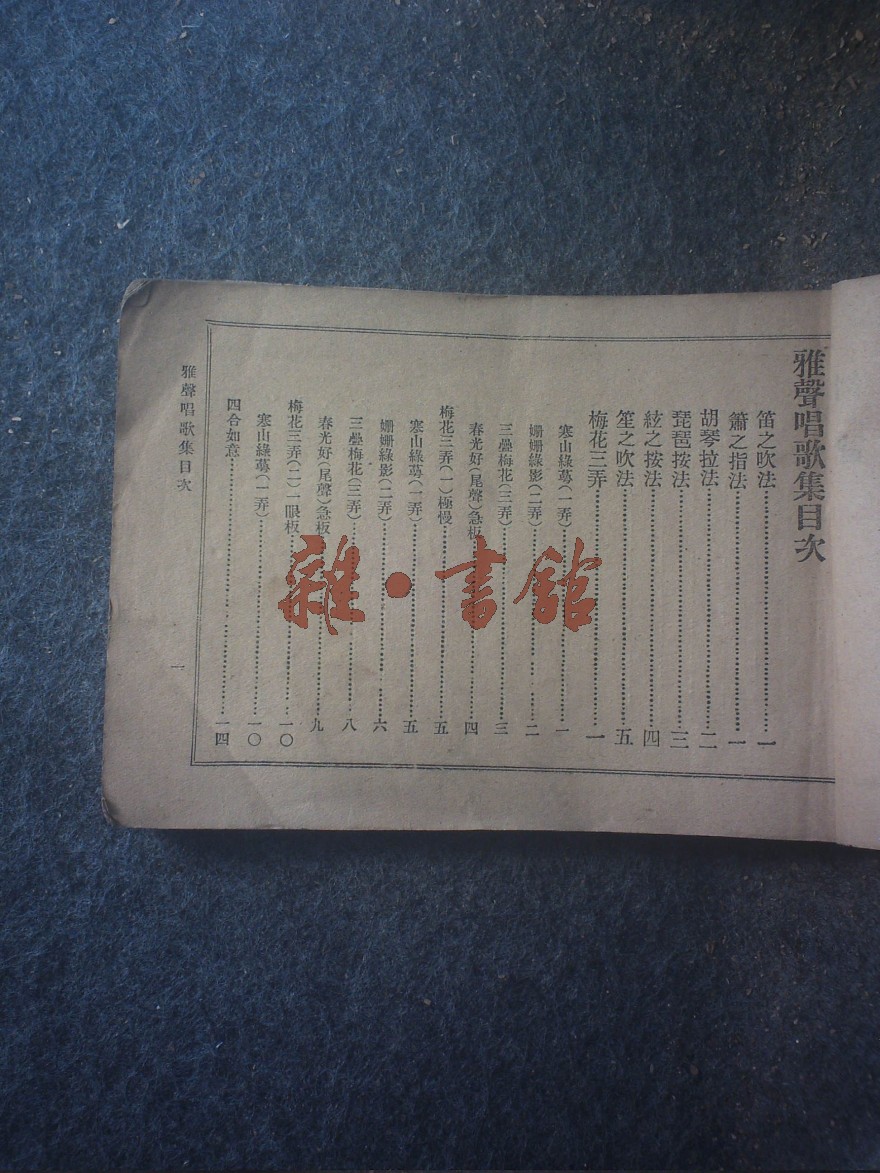 雅聲唱歌集目次
笛之吹法……一
簫之指法……一
胡琴拉法……二
琵琶按法……三
絃之按法……四
笙之吹法……五
梅花三弄……一
寒山綠萼(一弄)……一
姍姍綠影(二弄)……二
三疊梅花(三弄)……三
春光好(尾聲)急板……四
梅花三弄(一)極慢……五
寒山綠萼(一弄)……五
姍姍綠影(二弄)……六
三疊梅花(三弄)……八
春光好(尾聲)急板……九
梅花三弄(二)一眼板……一〇
寒山綠萼(一弄)……一〇
四合如意……一四
雅聲唱歌集目次
一
雜·書館